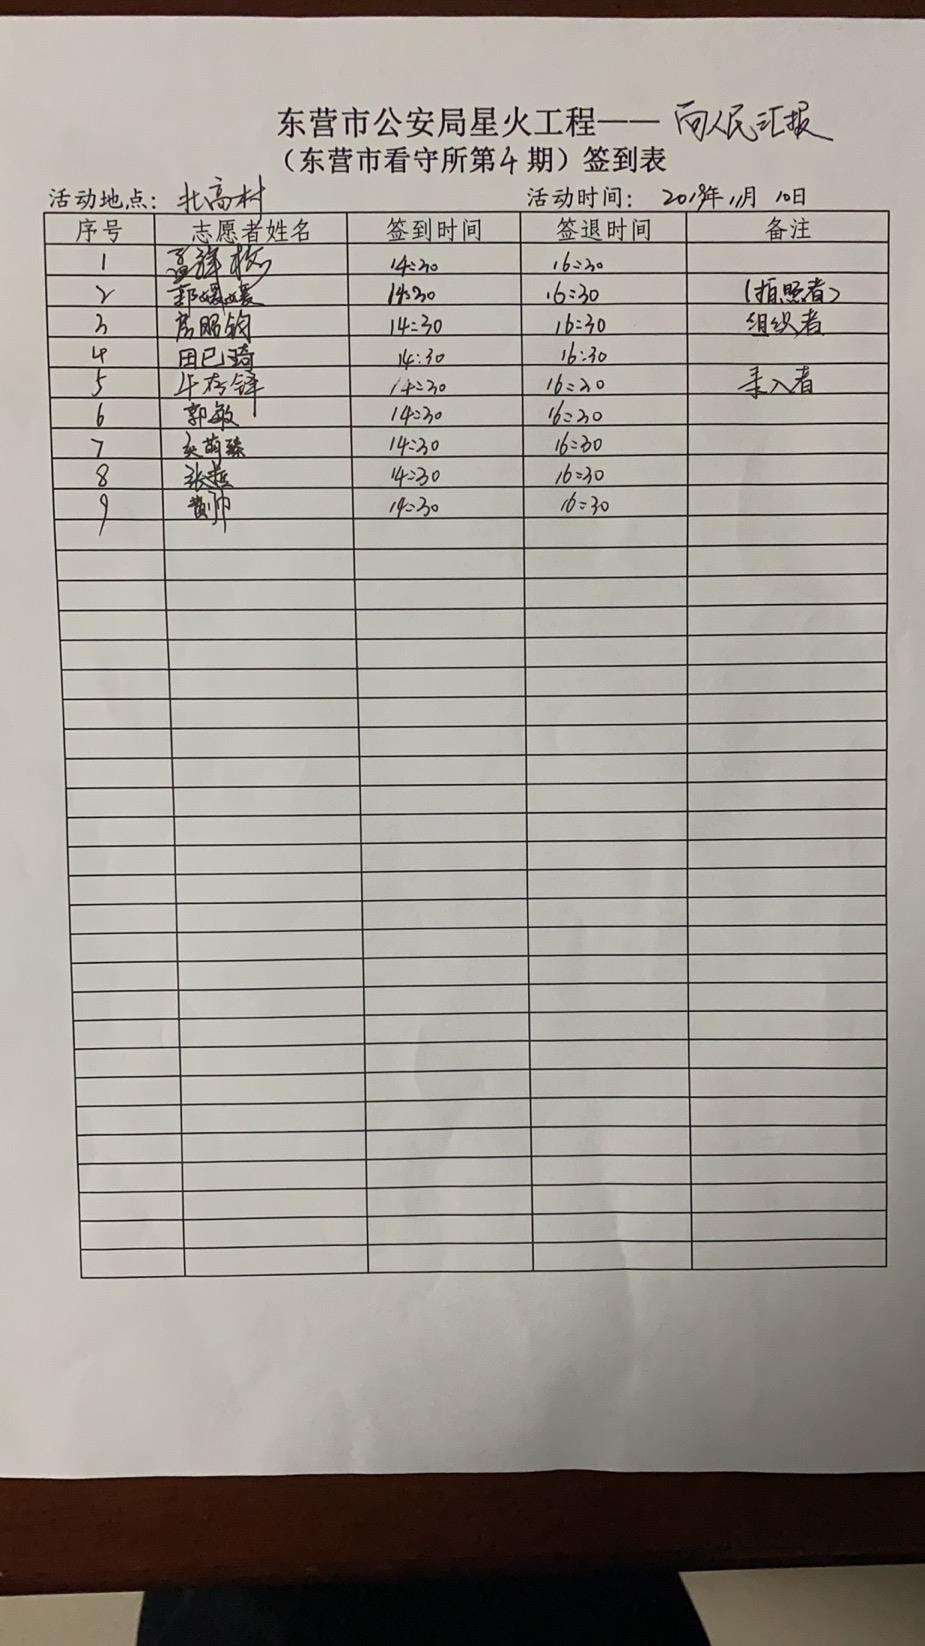 东营市公安局星火工程——向人民汇报
（东营市看守所第4期）签到表
活动地点：北高村 活动时间：2019年11月10日
序号 志愿者姓名 签到时间 签退时间 备注
1 14:30 16:30
2 郭媛媛 14:30 16:30 （拍照者）
3 房昭钧 14:30 16:30 组织者
4 田已琦 14:30 16:30
5 14:30 16:30 录入者
6 郭敏 14:30 16:30
7 14:30 16:30
8 14:30 16:30
9 14:30 16:30